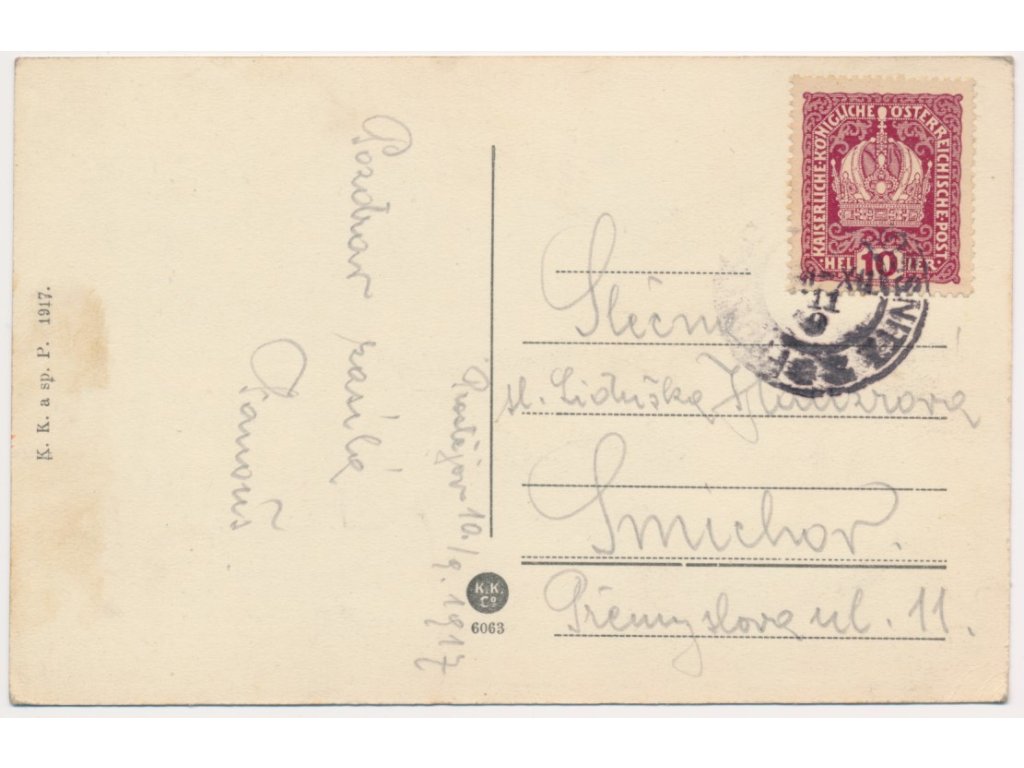 K. K. a sp. P. 1917.
Pozdrav
Prostějov 10./9. 1917
K.K.
Co
6063
KAISERLICHE KÖNIGLICHE ÖSTERREICHISCHE POST
HELLER
10
11
Slečna
sl. Liduška
Smíchov.
Přemyslova ul. 11.